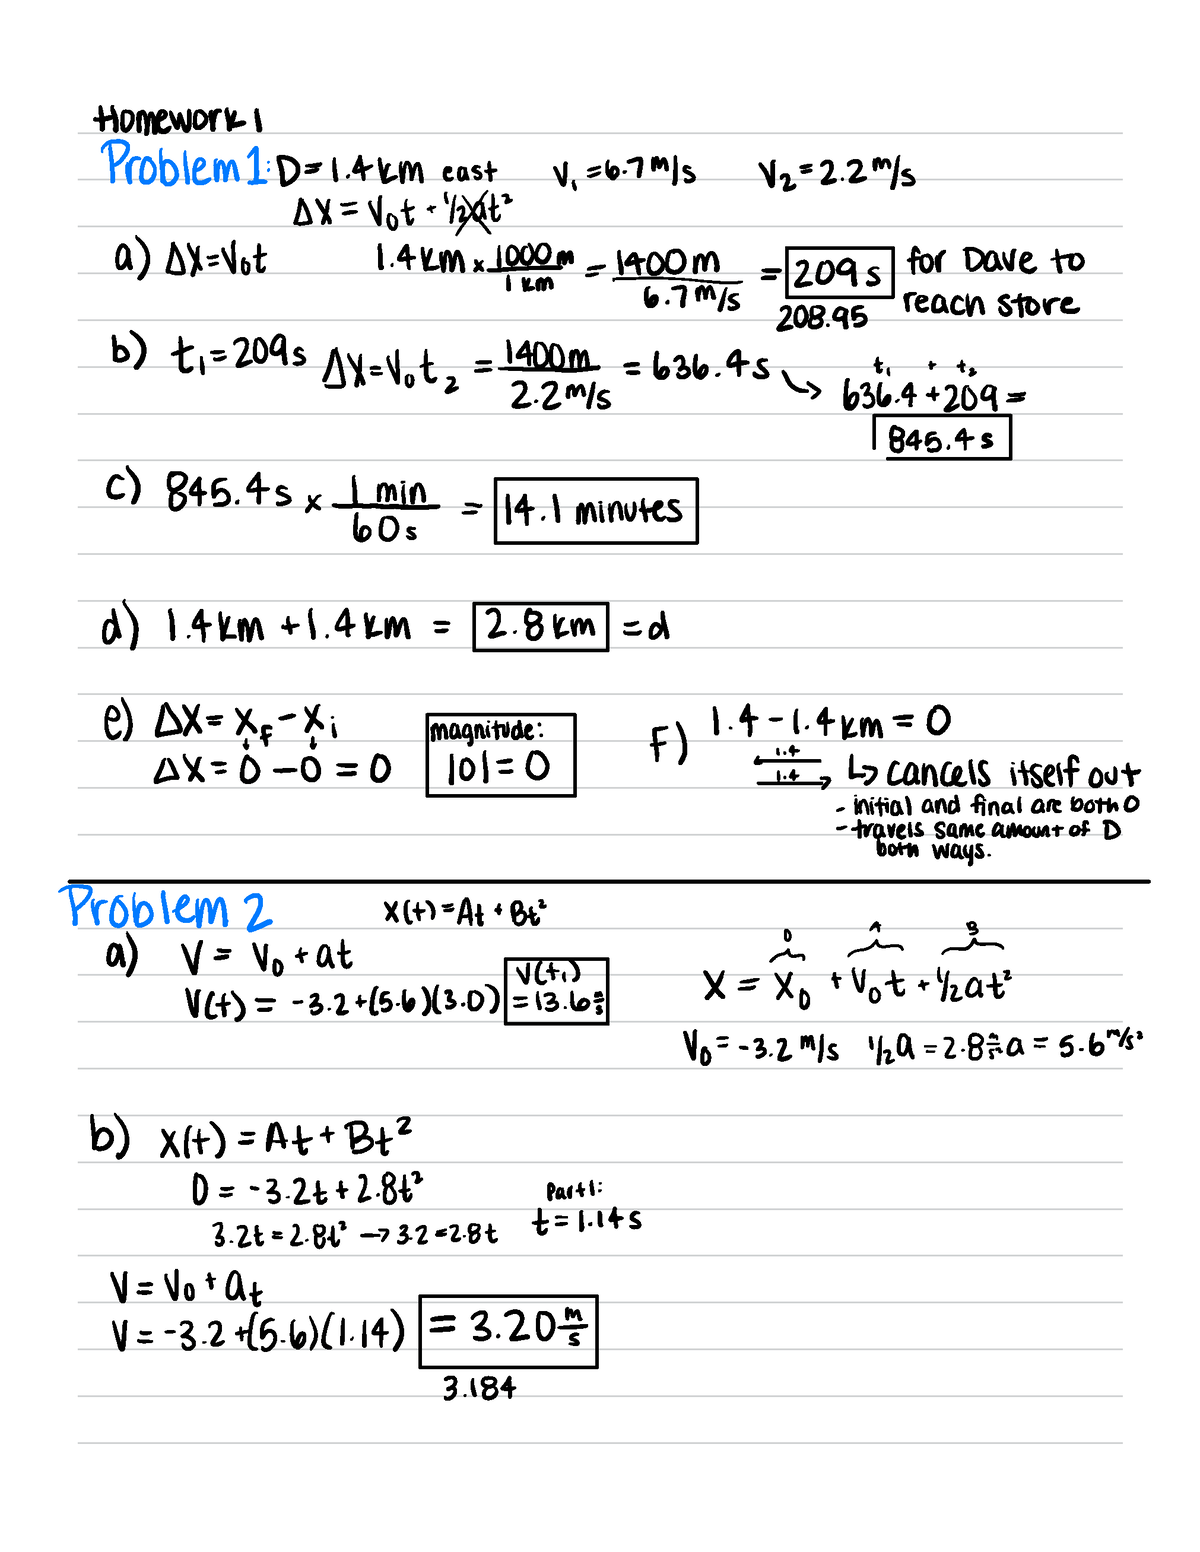 Homework 1
Problem 1: D = 1.4 km east V₁ = 6.7 m/s V₂ = 2.2 m/s
ΔX = V₀t + 1/2at²
a) ΔX = V₀t 1.4 km × 1000m / 1 km = 1400m / 6.7 m/s = 209 s for Dave to reach store
208.95
b) t₁ = 209s ΔX = V₀t₂ = 1400m / 2.2 m/s = 636.4s
t₁ + t₂
636.4 + 209 =
845.4 s
c) 845.4s × 1 min / 60s = 14.1 minutes
d) 1.4 km + 1.4 km = 2.8 km = d
e) ΔX = X_f - X_i
ΔX = 0 - 0 = 0
magnitude:
|0| = 0
F) 1.4 - 1.4 km = 0
1.4
1.4
↳ cancels itself out
- initial and final are both 0
- travels same amount of D
both ways.
Problem 2 X(t) = At + Bt²
a) V = V₀ + at
V(t) = -3.2 + (5.6)(3.0)
V(t₁)
= 13.6 m/s
0 A B
X = X₀ + V₀t + 1/2at²
V₀ = -3.2 m/s 1/2a = 2.8 a = 5.6 m/s²
b) X(t) = At + Bt²
0 = -3.2t + 2.8t²
3.2t = 2.8t² → 3.2 = 2.8t
Part 1:
t = 1.14 s
V = V₀ + at
V = -3.2 + (5.6)(1.14) = 3.20 m/s
3.184